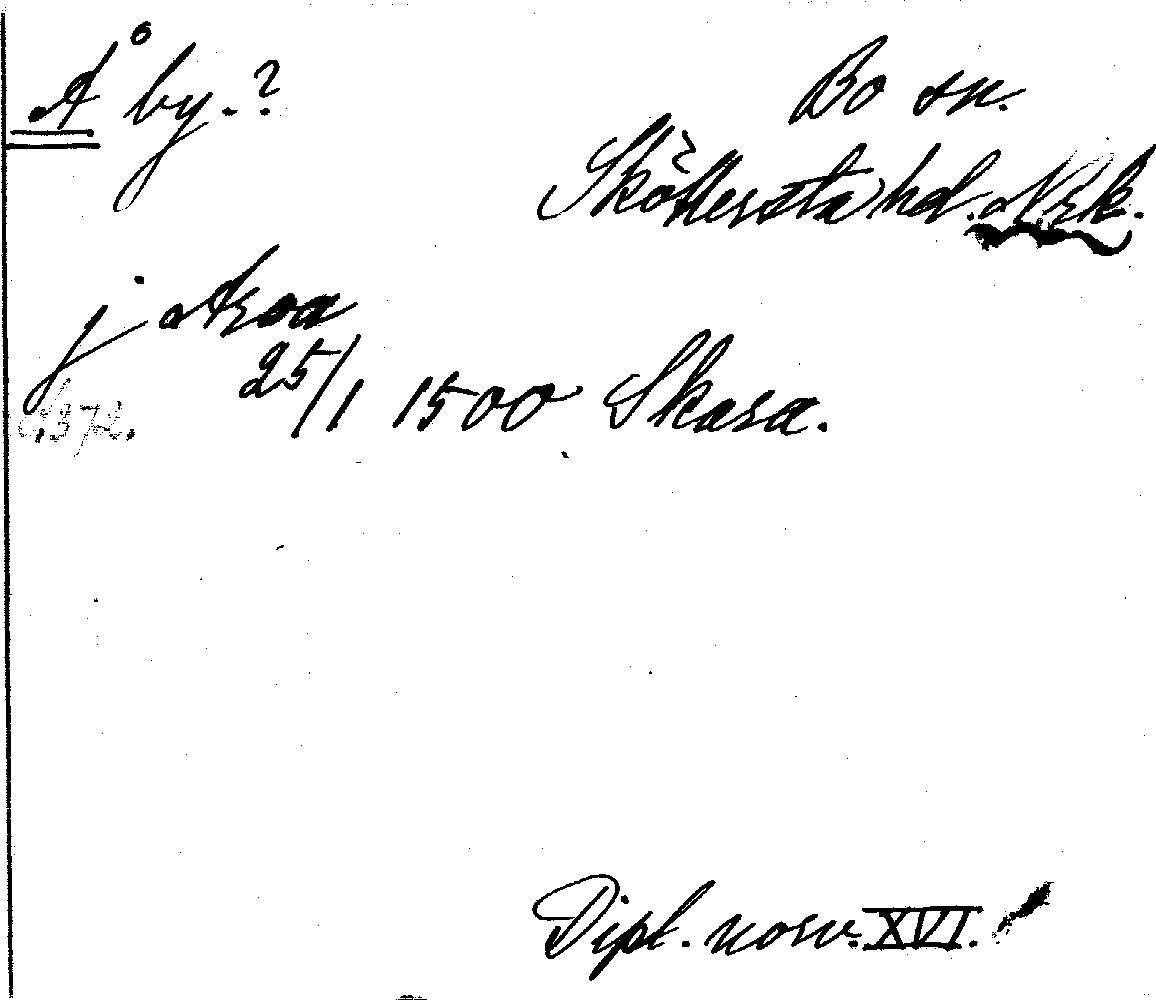 Å by.?
Bo sn.
Sköllersta hd. Nrk.
j Aroa
25/1 1500 Skara.
S.372.
Dipl. norv. XVI.